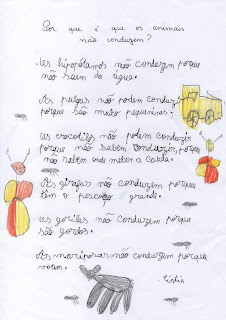 Por que é que os animais
não conduzem?
.Os hipopótamos não conduzem porque
não saem da água.
As pulgas não podem conduzir
porque são muito pequeninas.
Os crocodilos não podem conduzir
porque não sabem conduzir, porque
não sabem onde meter a cauda.
As girafas não conduzem porque
têm o pescoço grande.
Os gorilas não conduzem porque
são gordos.
As mariposas não conduzem porque
voam.